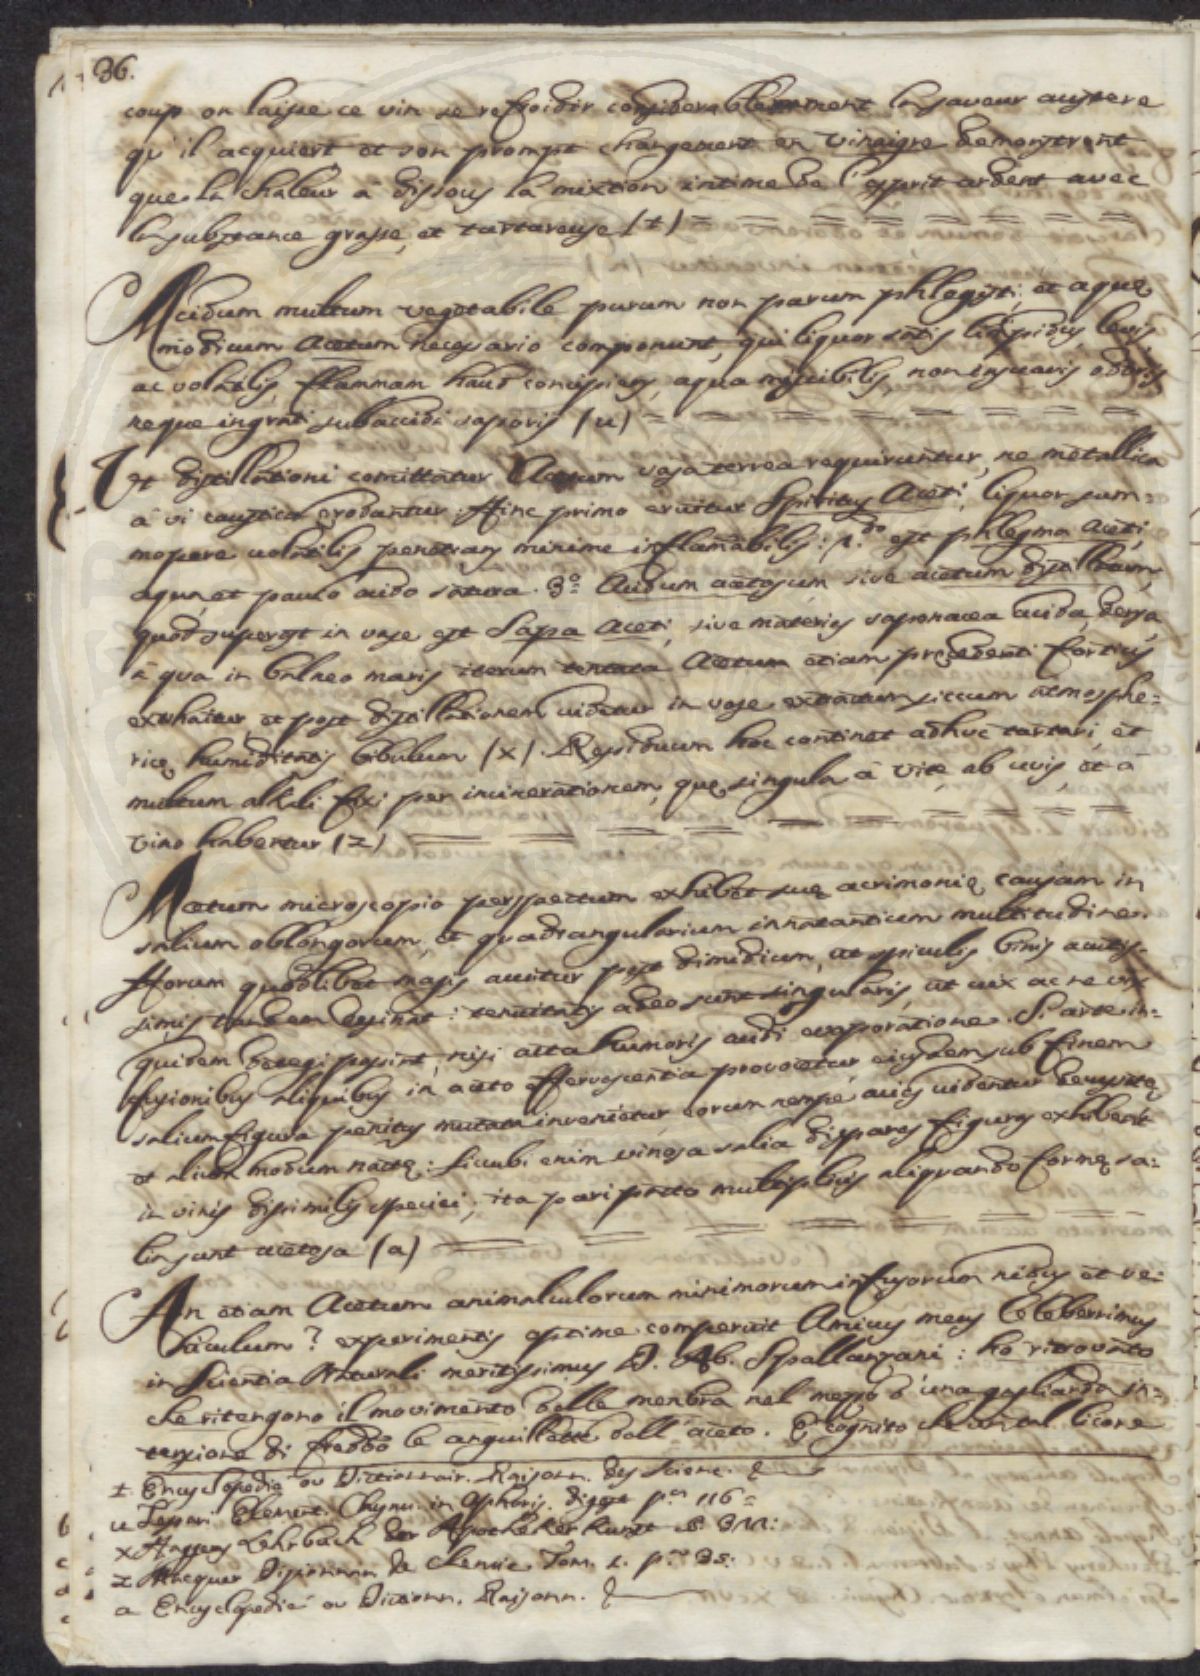 36.
coup on laisse ce vin se refroidir considerablement la saveur austere
qu'il acquiert, et son prompt changement en Vinaigre demonstrent
que la chaleur à dissous la mixtion intime de l'esprit ardent avec
la substance grasse, et tartareuse (t) = = = = = = = =
Acidum multum vegetabile purum non parum phlegmi; et aquę
modicum Acetum necessario componunt, qui liquor satis limpidus, levis
ac volatilis, flammam haud concipiens, aqua miscibilis, non insuavis odoris
neque ingrati subacidi saporis (u) = = = = = = = =
Ut distillationi comittatur Acetum vasa terrea requiruntur, ne metallica
à vi caustica erodantur. Hinc primo eruitur Spiritus Aceti, liquor sum=
mopere volatilis penetrans minime inflamabilis: 2.do est phlegma Aceti,
aqua, et pauco acido satura. 3.o Acidum acetosum, sive acetum distillatum,
quod superest in vase est Sapa Aceti, sive materies saponacea acida, densa
à qua in balneo maris iterum tentata Acetum etiam pręcedenti fortius
extrahitur, et post distillationem videtur in vase extractum siccum atmosphe=
ricę humiditatis bibulum (x). Residuum hoc continet adhuc tartari, et
multum alkali fixi per incinerationem, quę singula à Vite, ab uvis, et à
Vino habentur (z) = = = = = = = =
Acetum microscopio perspectum exhibet suę acrimonię causam in
salium oblongorum, et quadrangularium innatantium multitudine.
Horum quodlibet magis acuitur post dimidium, ac spiculis binis acutis=
simis tandem desinat: tenuitatis adeo sunt singularis, ut vix ac ne vix
quidem detegi possint, nisi acta humoris acidi evaporatione. Si arte in=
fusionibus aliquibus in aceto effervescentia provocetur, ejusdem sub finem
salium figura penitus mutata invenietur eorum nempe acies videntur detusitę
et alium modum nactę: sicubi enim vinosa salia dispares figuras exhibent
in vinis dissimilis speciei, ita pari pacto multiplicis aliquando formę sa=
lia sunt acetosa (a) = = = = = = = =
An etiam Acetum animalculorum minimorum infusorum nidus et ve=
hiculum? experimentis optime comperuit Amicus meus Celeberrimus
in Scientia Naturali meritissimus D. Ab. Spallanzani: ho ritrovato
che ritengono il movimento delle menbra nel mezzo d'una gagliarda in=
tenzione di freddo le anguillette dell'aceto. È cognito che un tal licore
t. Encyclopedie ou Dictionnair. Raisonn. des scienc. &
u Element. Chym. in Aphoris. digest pag. 116 =
x Hagens Lehrbuch der Apothekerkunst
z Macquer Dictionnair. de Chemie Tom. 1. pag. 35:
a Encyclopedie ou Dictionn. Raisonn. &